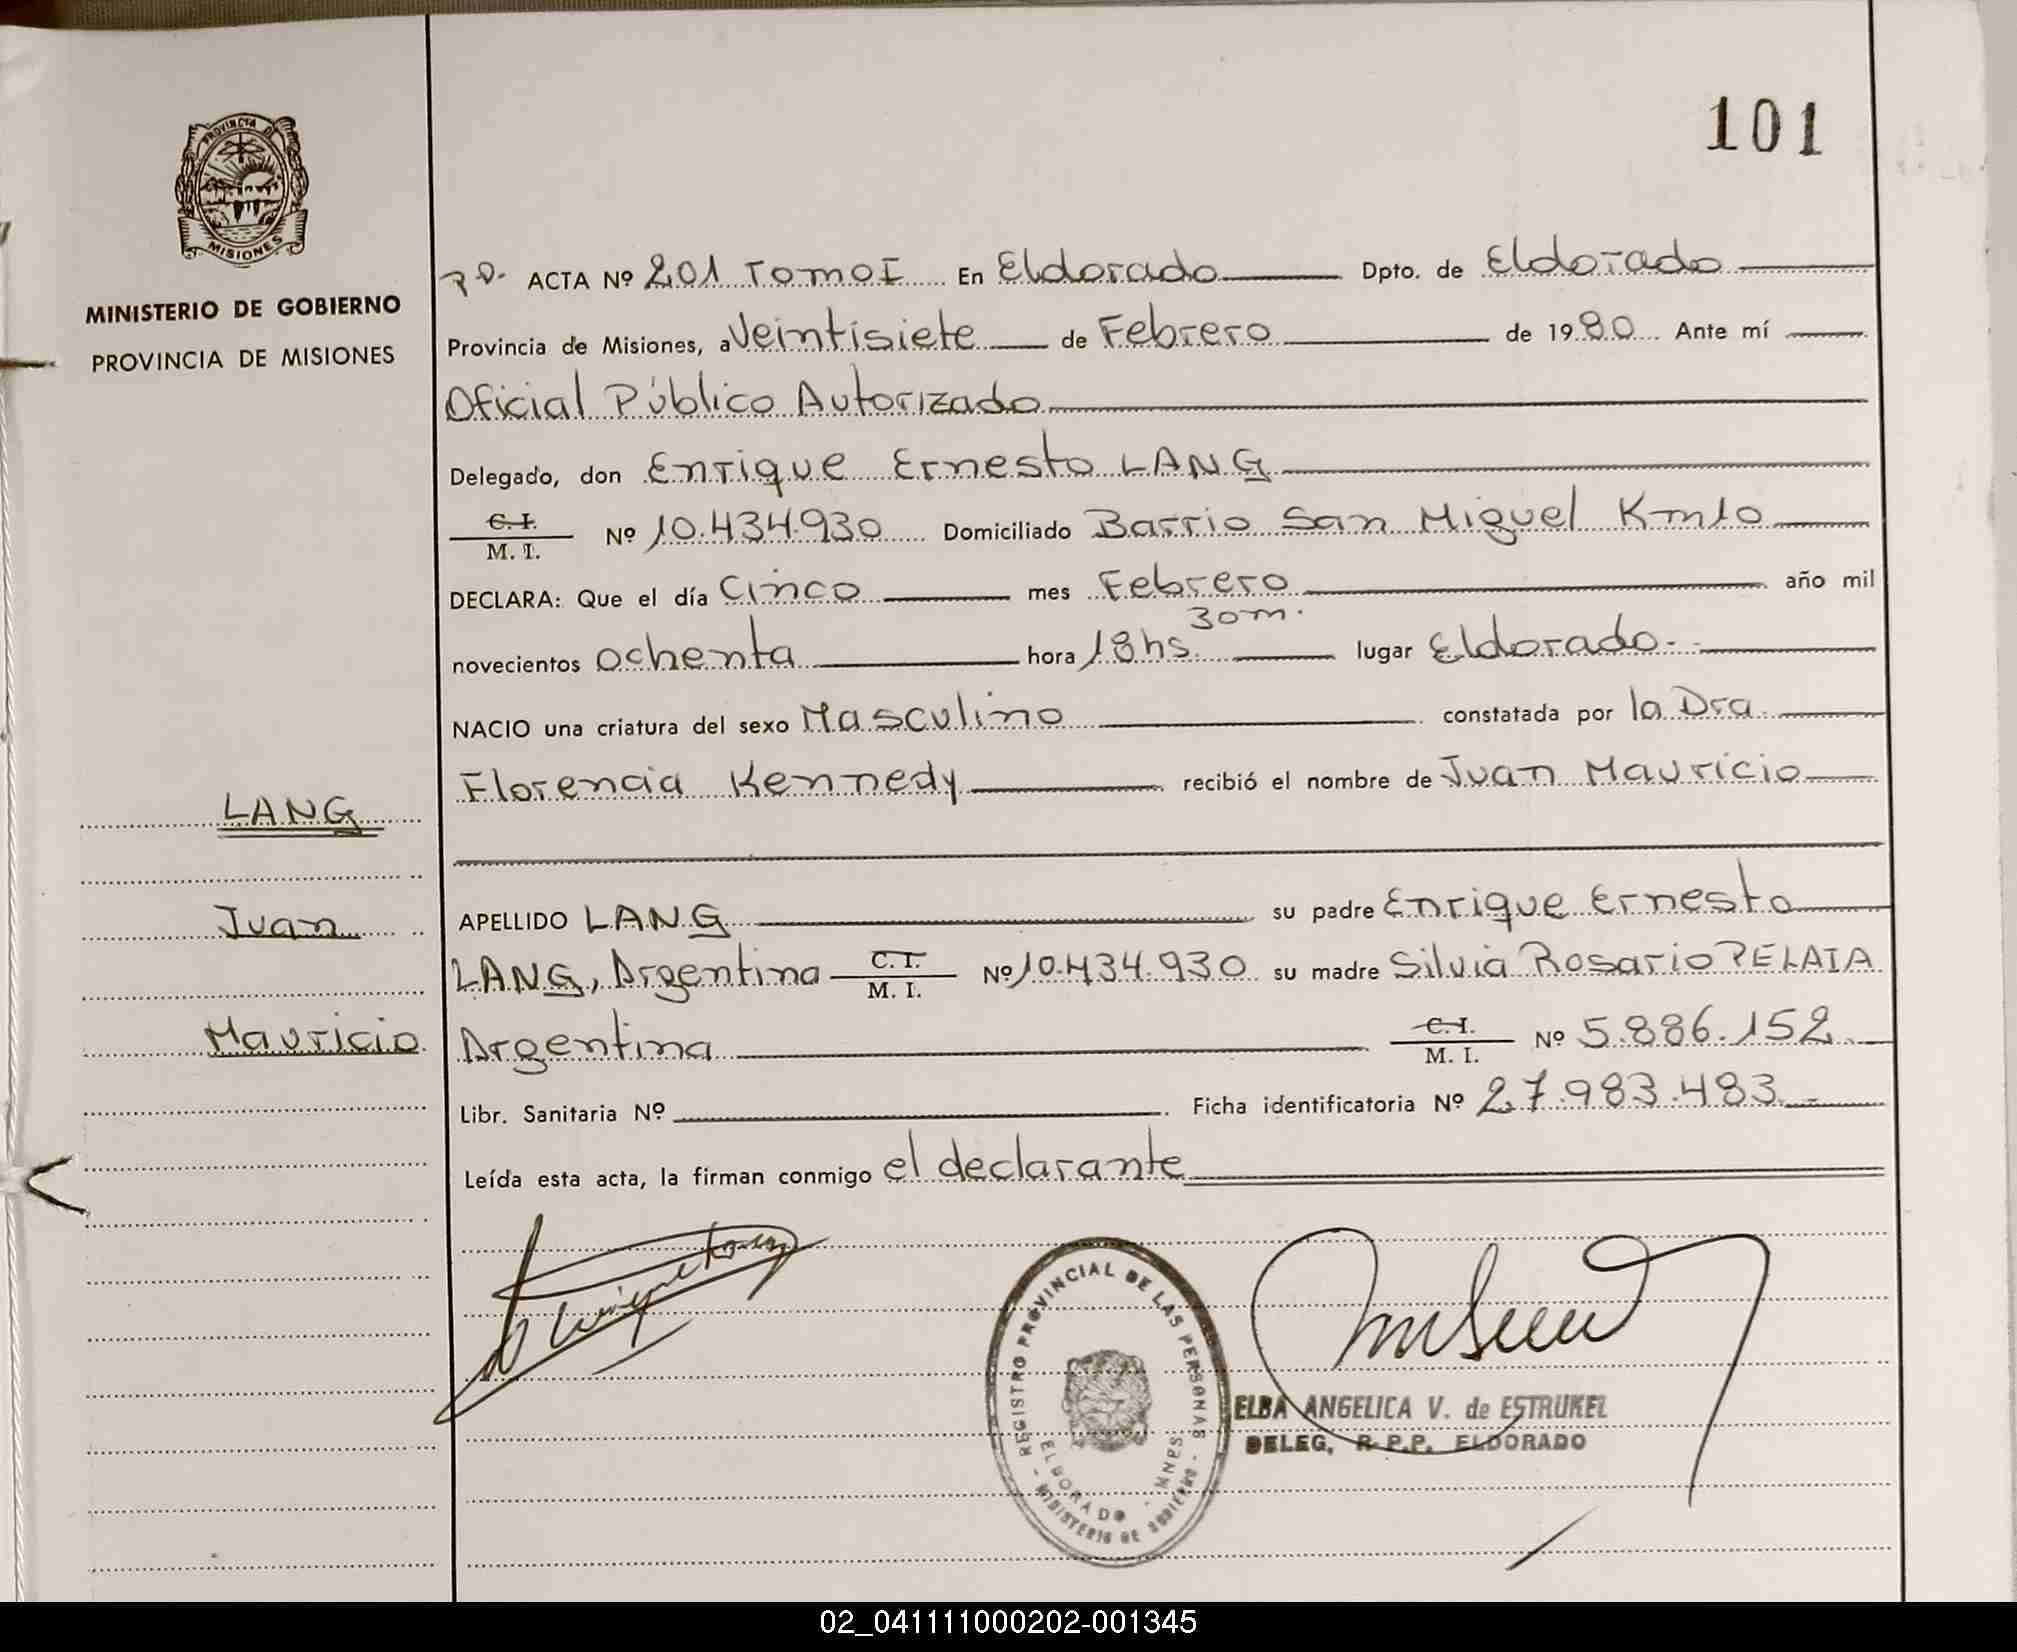 101
PROVINCIA DE
MISIONES
MINISTERIO DE GOBIERNO
PROVINCIA DE MISIONES
ACTA Nº 201 TOMO I En Eldorado Dpto. de Eldorado
Provincia de Misiones, a Veintisiete de Febrero de 1980 Ante mí
Oficial Público Autorizado
Delegado, don Enrique Ernesto LANG
C. I.
M. I. Nº 10.434.930 Domiciliado Barrio San Miguel Km10
DECLARA: Que el día Cinco mes Febrero año mil
novecientos ochenta hora 18hs. 30m. lugar Eldorado.-
NACIO una criatura del sexo Masculino constatada por la Dra.
Florencia Kennedy recibió el nombre de Juan Mauricio
LANG
Juan
Mauricio
APELLIDO LANG su padre Enrique Ernesto
LANG, Argentino C. I. M. I. Nº 10.434.930 su madre Silvia Rosario PELAIA
Argentina C. I. M. I. Nº 5.886.152.
Libr. Sanitaria Nº Ficha identificatoria Nº 27.983.483.-
Leída esta acta, la firman conmigo el declarante
REGISTRO PROVINCIAL DE LAS PERSONAS
ELDORADO - MNES
- MINISTERIO DE GOBIERNO -
ELBA ANGELICA V. de ESTRUKEL
DELEG, R.P.P. ELDORADO
02_041111000202-001345